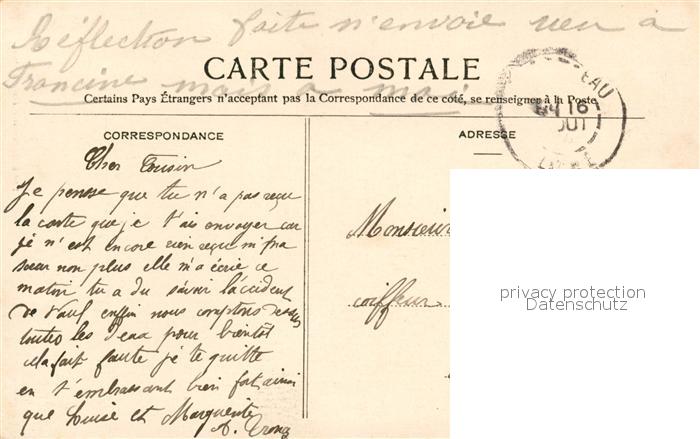 Réflection faite n'envoie rien à
Francine mais a moi
CARTE POSTALE
Certains Pays Étrangers n'acceptant pas la Correspondance de ce côté, se renseigner à la Poste.
EAU
16
OUT
CORRESPONDANCE
ADRESSE
Cher Cousin
Je pense que tu n'a pas reçu
la carte que je t'ais envoyer car
je n'est encore rien reçu ni ma
sœur non plus elle m'a écrie ce
matin tu a du savoir l'accident
de Paul enfin nous comptons dessus
toutes les deux pour bientôt
cela fait faute je te quitte
en t'embrassant bien fort ainsi
que Louise et Marguerite
A.
Monsieur
coiffeur
privacy protection
Datenschutz